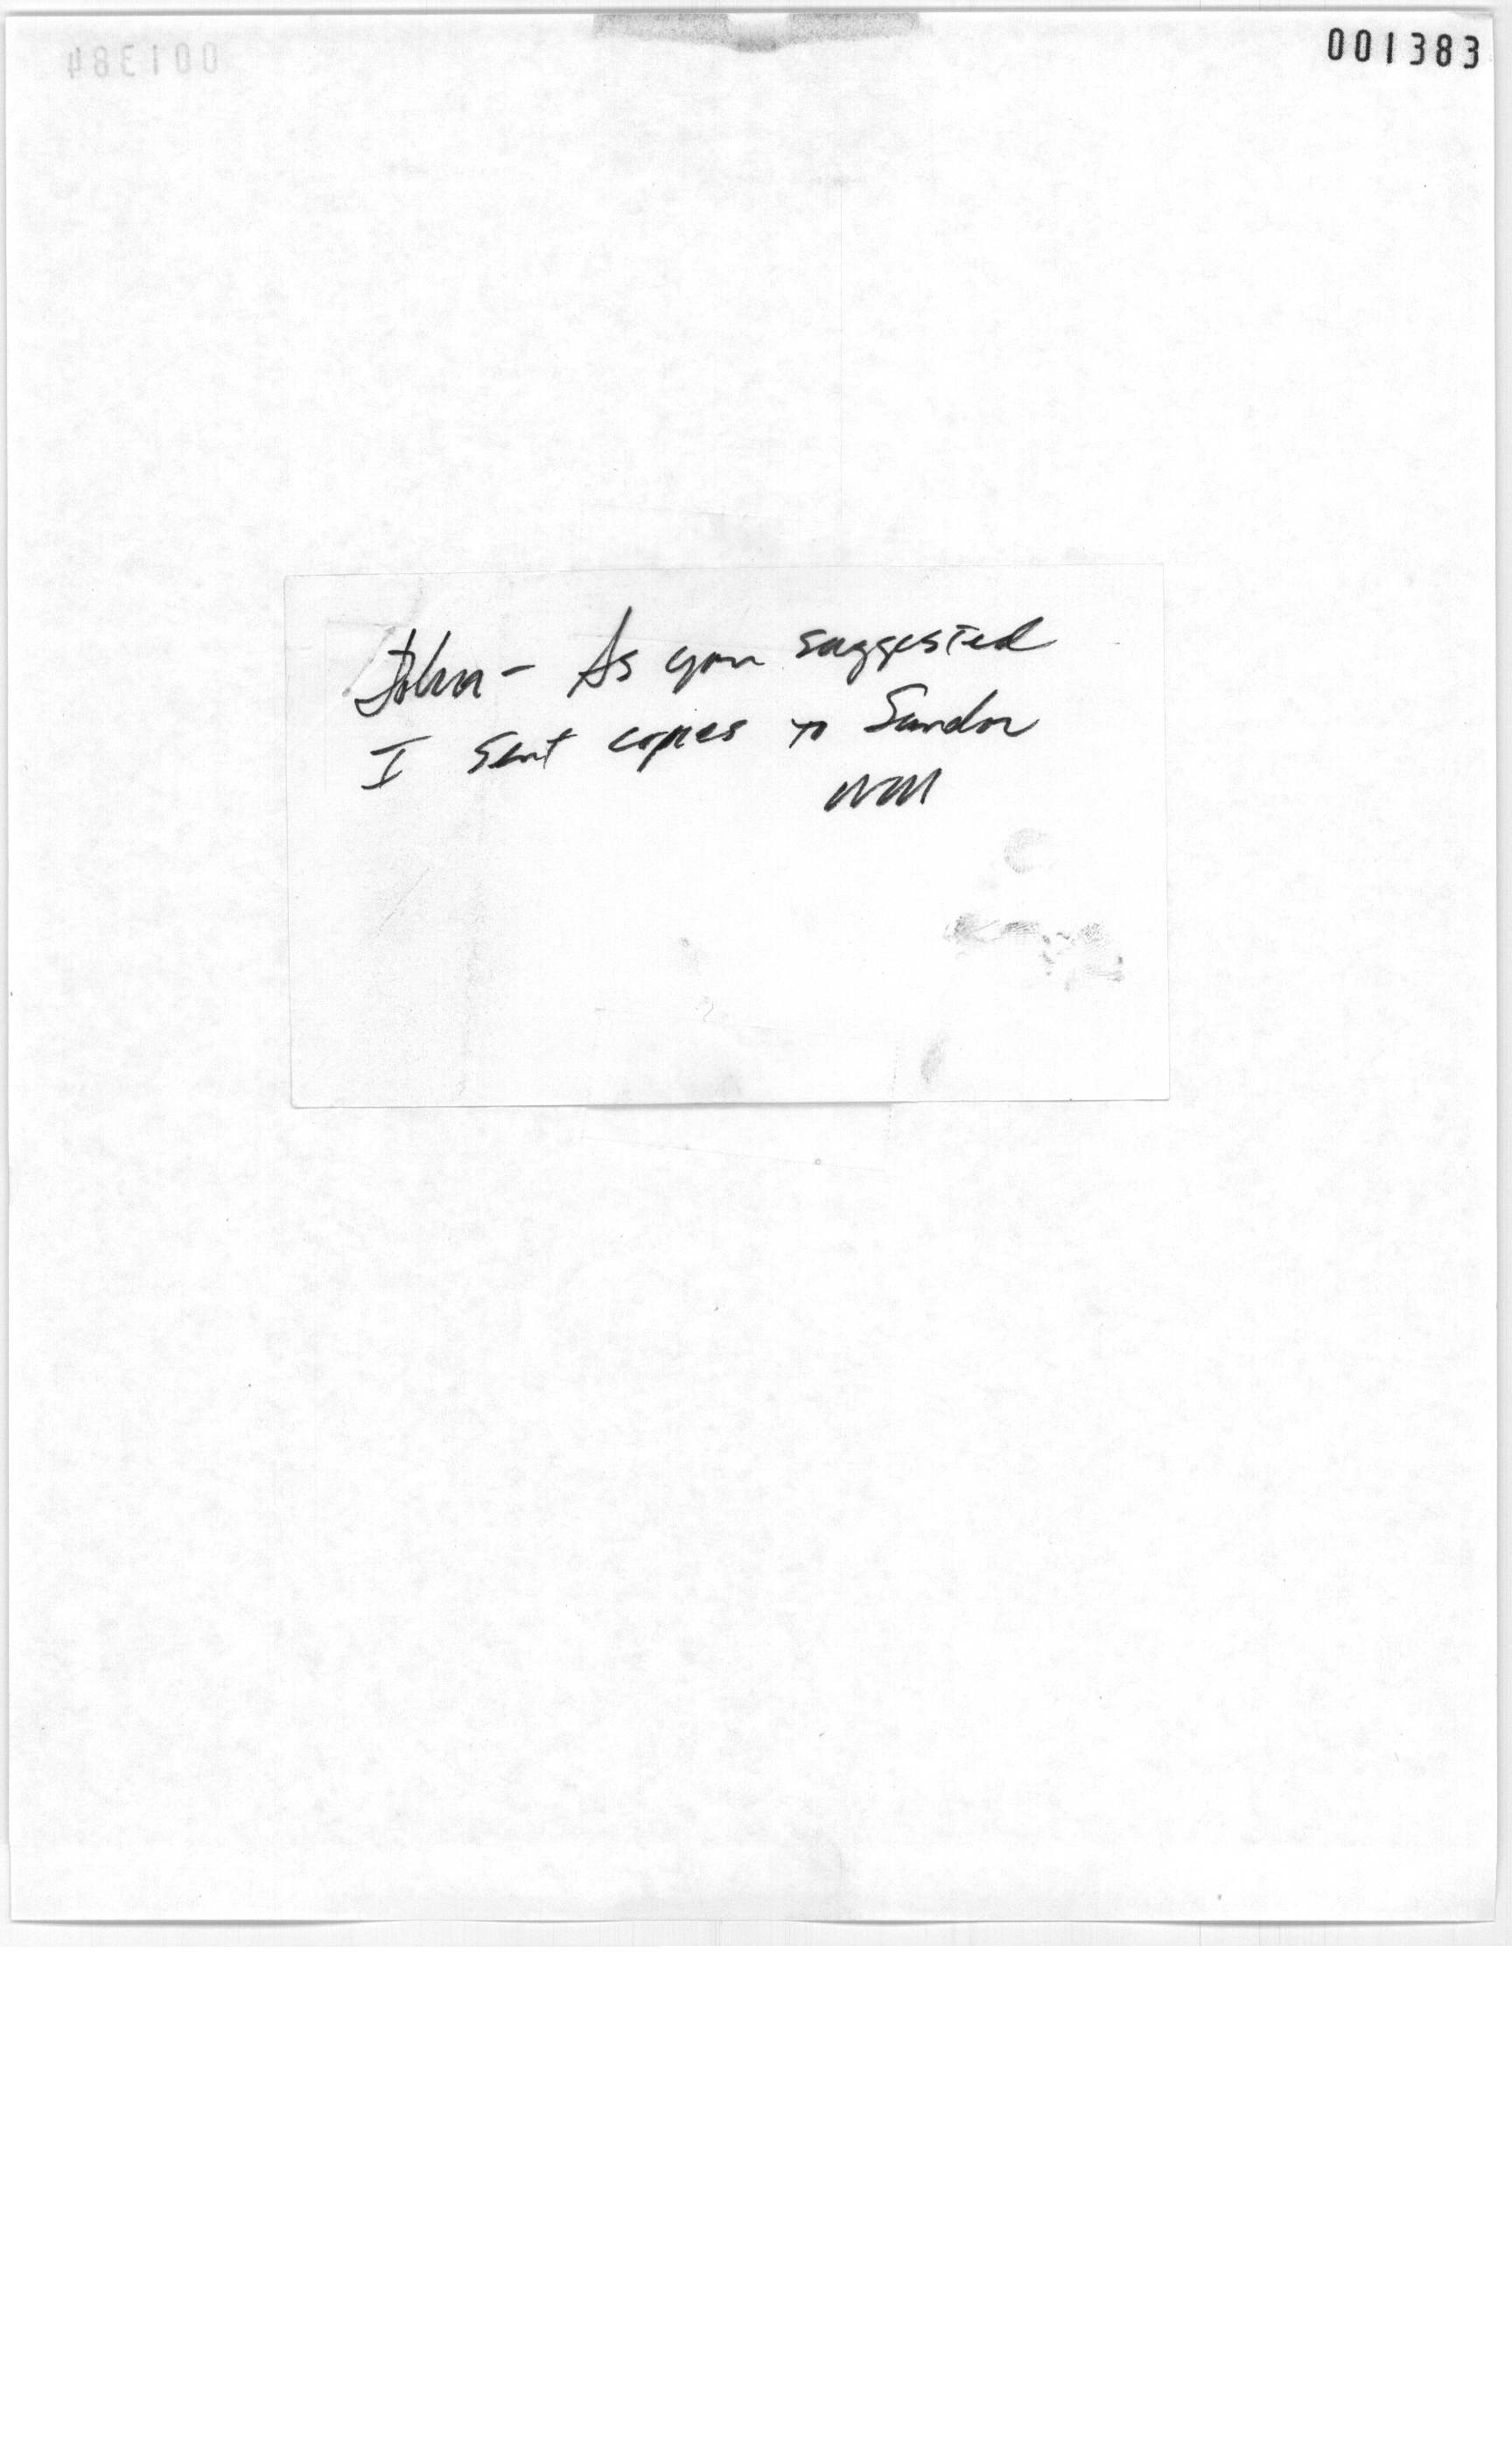 001383
001384
John - As you suggested
I sent copies to Sandor